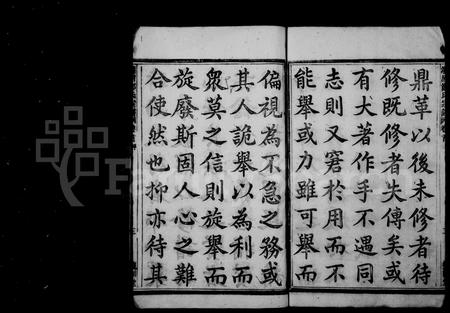 鼎革以後未修者待
修既修者失傳矣或
有大著作手不遇同
志則又窘於用而不
能舉或力雖可舉而
偏視為不急之務或
其人詭舉以為利而
眾莫之信則旋舉而
旋廢斯固人心之難
合使然也抑亦待其